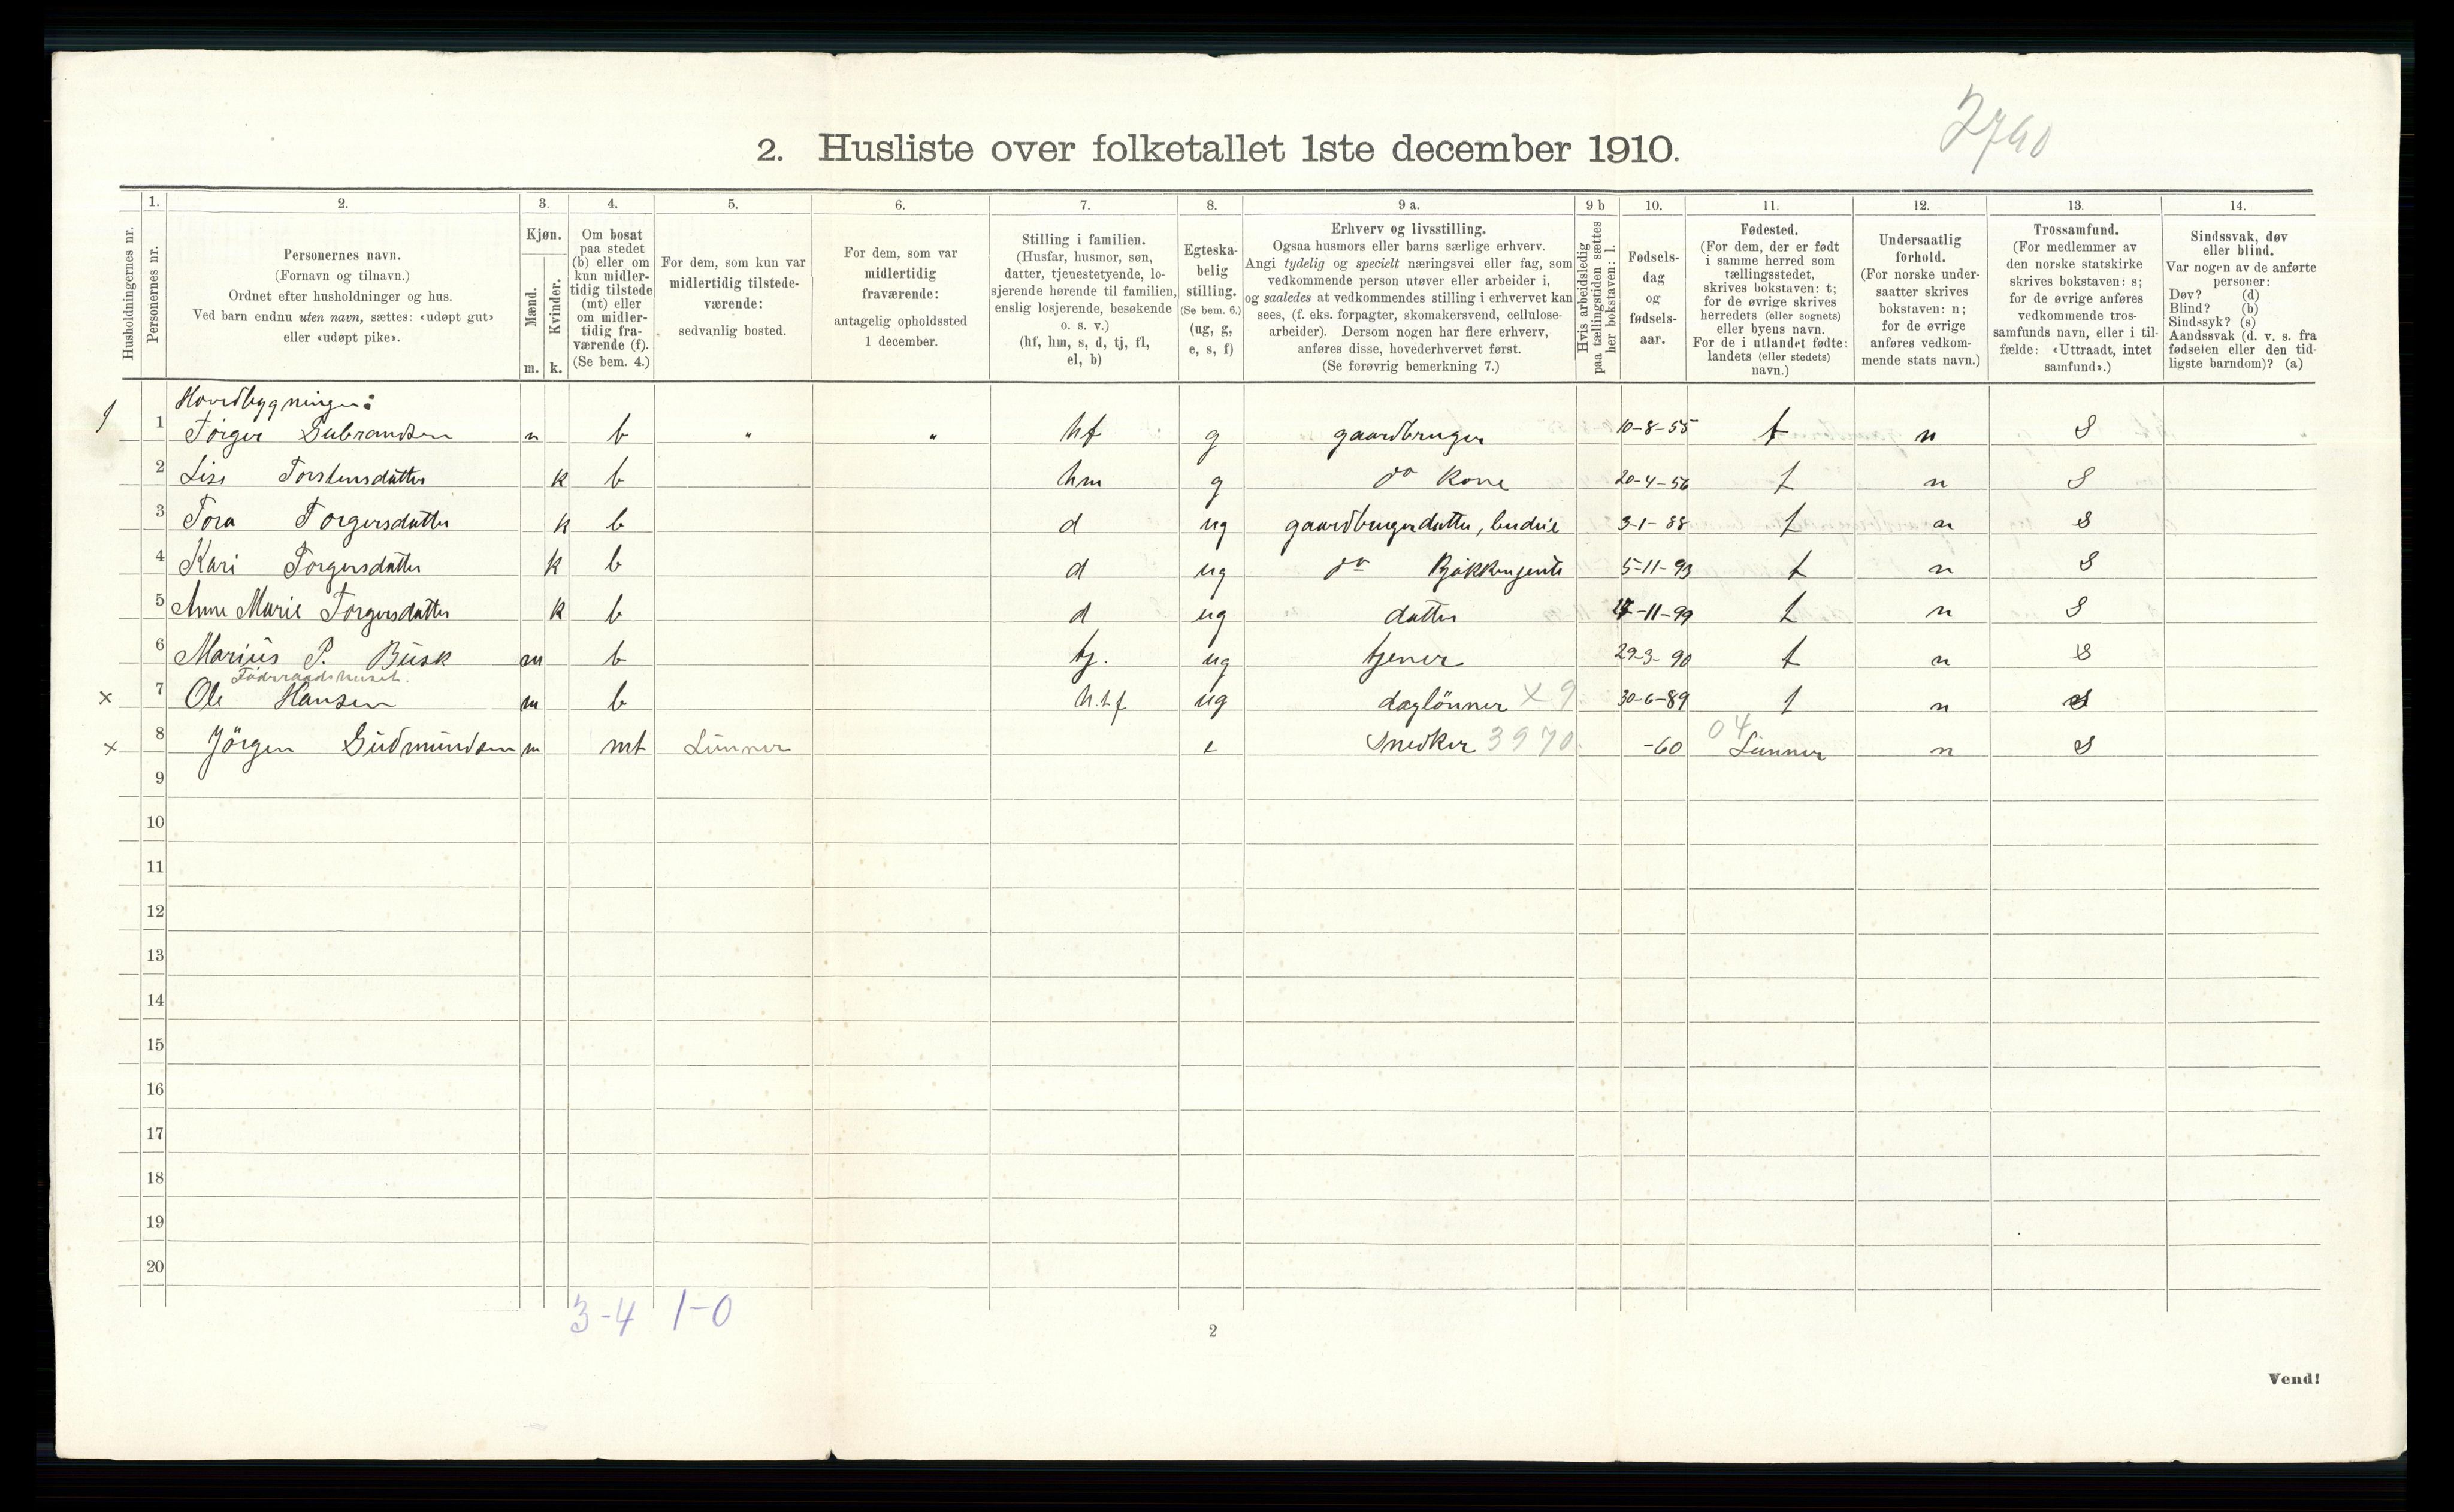 2790
2. Husliste over folketallet 1ste december 1910.
Husholdningernes nr.
1. Personernes nr.
2. Personernes navn. (Fornavn og tilnavn.) Ordnet efter husholdninger og hus. Ved barn endnu uten navn, sættes: «udøpt gut» eller «udøpt pike».
3. Kjøn. Mænd. m. Kvinder. k.
4. Om bosat paa stedet (b) eller om kun midlertidig tilstede (mt) eller om midlertidig fraværende (f). (Se bem. 4.)
5. For dem, som kun var midlertidig tilstedeværende: sedvanlig bosted.
6. For dem, som var midlertidig fraværende: antagelig opholdssted 1 december.
7. Stilling i familien. (Husfar, husmor, søn, datter, tjenestetyende, losjerende hørende til familien, enslig losjerende, besøkende o. s. v.) (hf, hm, s, d, tj, fl, el, b)
8. Egteskabelig stilling. (Se bem. 6.) (ug, g, e, s, f)
9 a. Erhverv og livsstilling. Ogsaa husmors eller barns særlige erhverv. Angi tydelig og specielt næringsvei eller fag, som vedkommende person utøver eller arbeider i, og saaledes at vedkommendes stilling i erhvervet kan sees, (f. eks. forpagter, skomakersvend, cellulosearbeider). Dersom nogen har flere erhverv, anføres disse, hovederhvervet først. (Se forøvrig bemerkning 7.)
9 b Hvis arbeidsledig paa tællingstiden sættes her bokstaven: l.
10. Fødselsdag og fødselsaar.
11. Fødested. (For dem, der er født i samme herred som tællingsstedet, skrives bokstaven: t; for de øvrige skrives herredets (eller sognets) eller byens navn. For de i utlandet fødte: landets (eller stedets) navn.)
12. Undersaatlig forhold. (For norske undersaatter skrives bokstaven: n; for de øvrige anføres vedkommende stats navn.)
13. Trossamfund. (For medlemmer av den norske statskirke skrives bokstaven: s; for de øvrige anføres vedkommende trossamfunds navn, eller i tilfælde: «Uttraadt, intet samfund».)
14. Sindssvak, døv eller blind. Var nogen av de anførte personer: Døv? (d) Blind? (b) Sindssyk? (s) Aandssvak (d. v. s. fra fødselen eller den tidligste barndom)? (a)
Hovedbygningen:
1 1 Torger Gubrandsen m b " " hf g gaardbruger 10-8-55 t n S
2 Lise Torstensdatter k b hm g do Kone 20-4-56 t n S
3 Tora Torgersdatter k b d ug gaardbrugerdatter, budeie 3-1-88 t n S
4 Kari Torgersdatter k b d ug do Kjøkkenjente 5-11-93 t n S
5 Anne Marie Torgersdatter k b d ug datter -11-99 t n S
6 Marius P. Busk m b tj. ug tjener 29-3-90 t n S
Föderaadshuset.
x 7 Ole Hansen m b ug daglönner x 9 30-6-89 t n S
x 8 Jörgen Gudmundsen m mt Lunner e Snedker 3970 -60 04 Lunner n S
9
10
11
12
13
14
15
16
17
18
19
20
3-4 1-0
2
Vend!